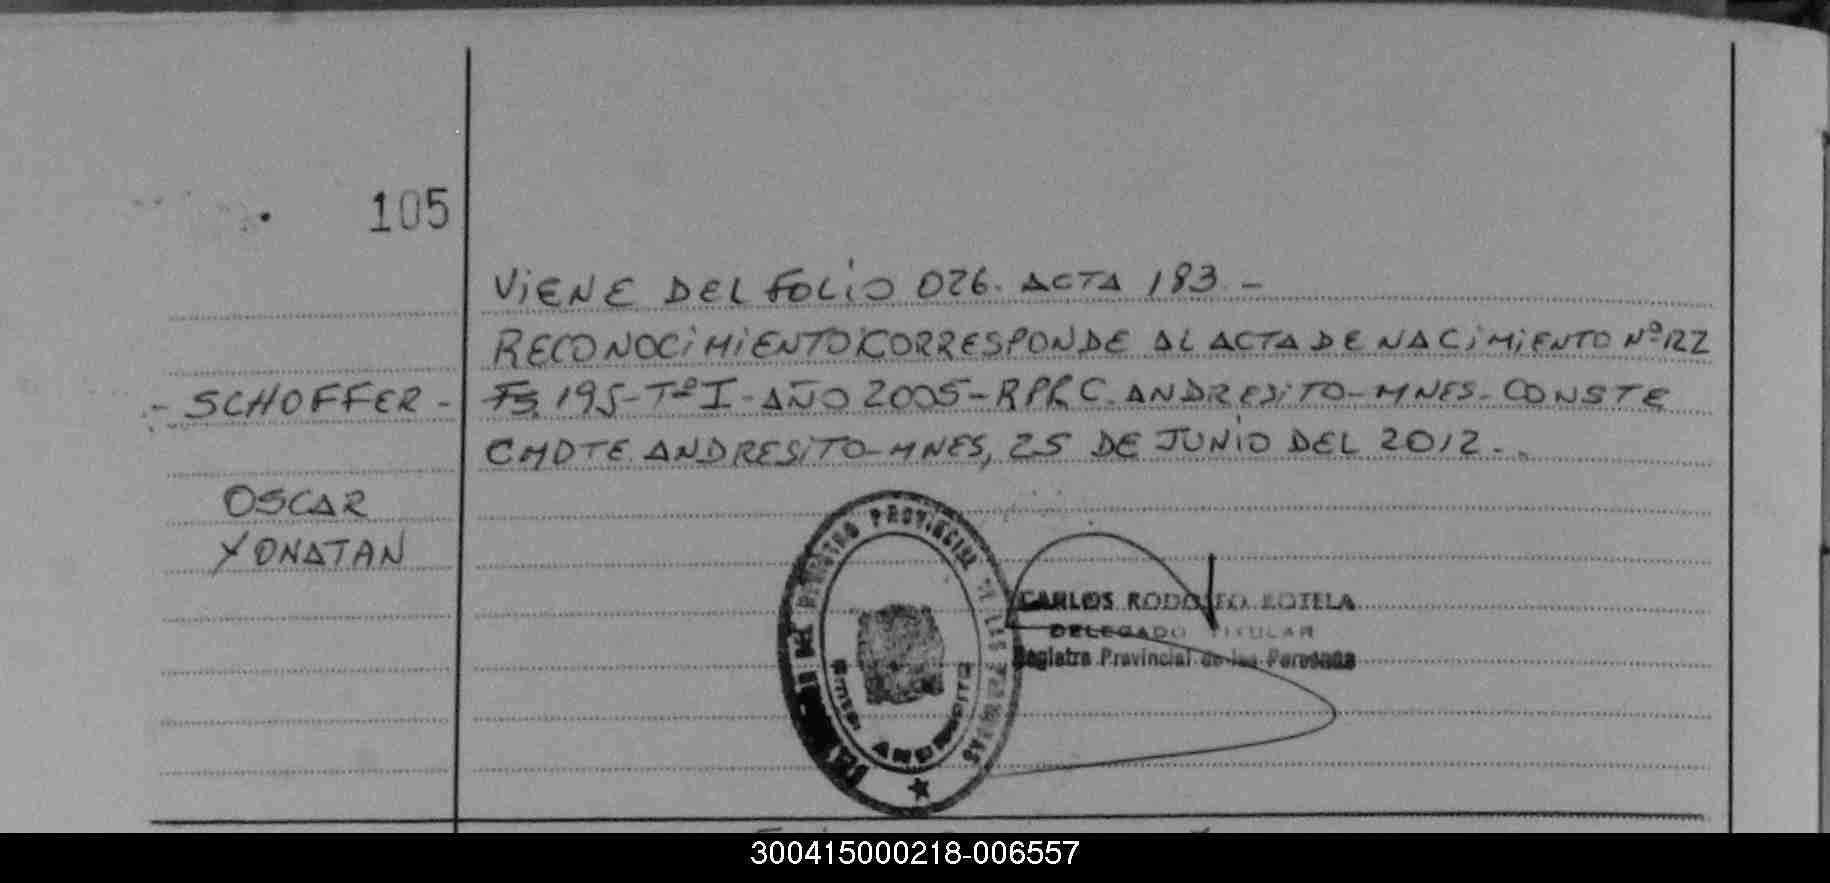 105
VIENE DEL FOLIO 026. ACTA 183.-
RECONOCIMIENTO CORRESPONDE AL ACTA DE NACIMIENTO Nº 122
- SCHOFFER -
Fs 195-Tº I-AÑO 2005-RPRC. ANDRESITO-MNES-CONSTE
CMDTE ANDRESITO-MNES, 25 DE JUNIO DEL 2012.-
OSCAR
YONATAN
DEL REGISTRO PROVINCIAL DE LAS PERSONAS
ANDRESITO
CARLOS RODOLFO LOTELA
DELEGADO TITULAR
Registro Provincial de las Personas
300415000218-006557